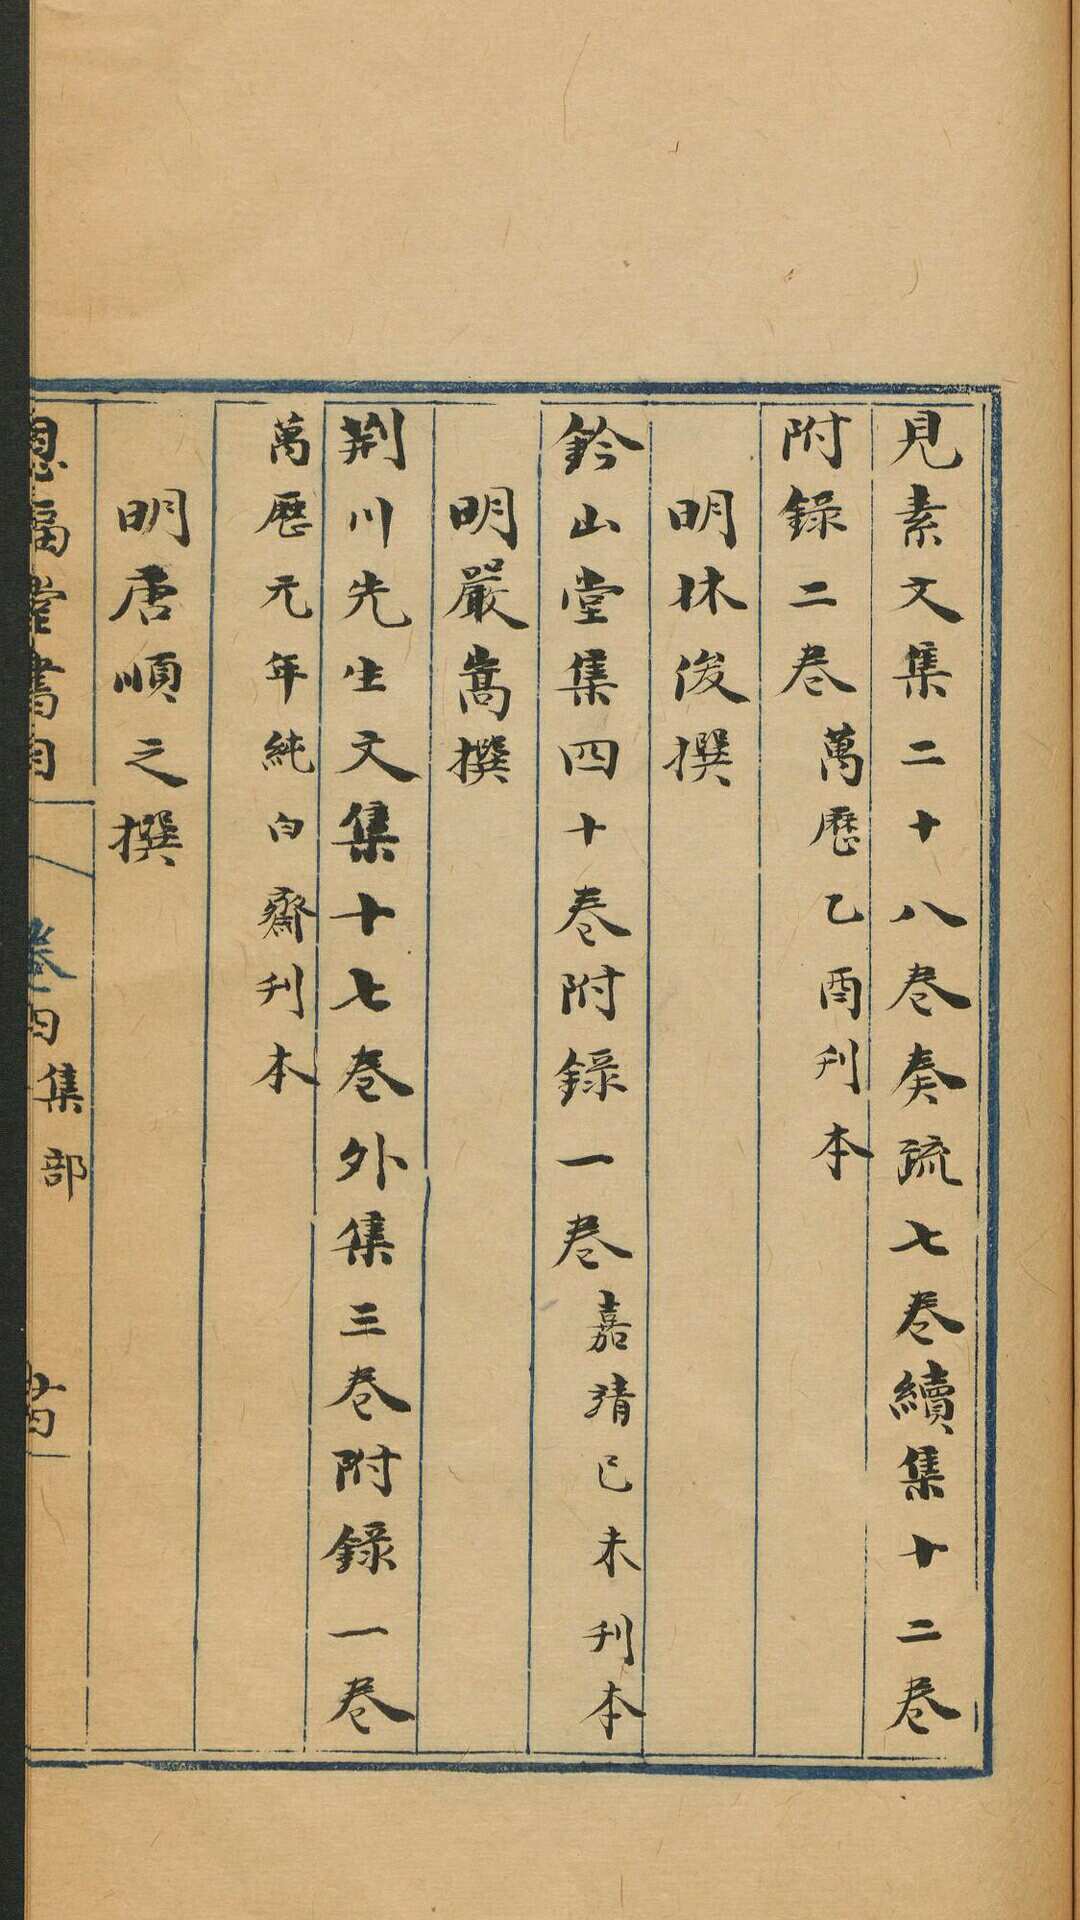 見素文集二十八卷奏疏七卷續集十二卷
附錄二卷萬歷乙酉刊本
明林俊撰
鈐山堂集四十卷附錄一卷嘉靖己未刊本
明嚴嵩撰
荆川先生文集十七卷外集三卷附錄一卷
萬歷元年純白齋刊本
明唐順之撰
恩福堂書目
卷四集部